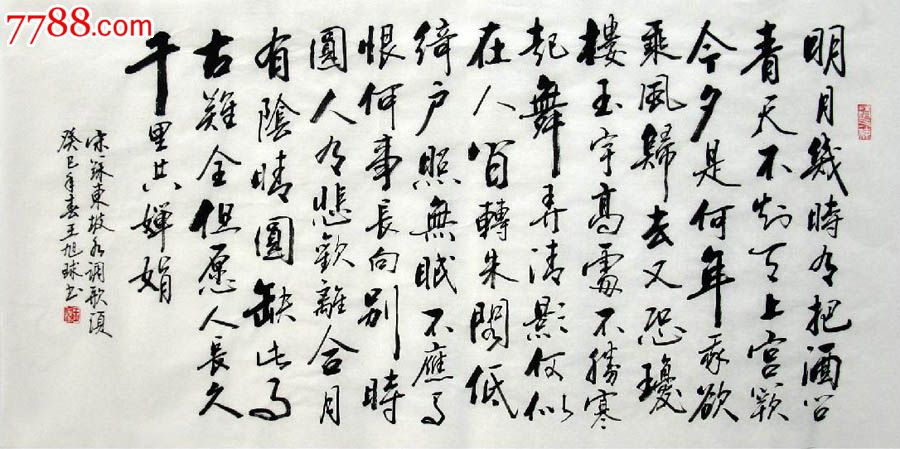 7788.com
明月幾時有把酒问
青天不知天上宫闕
今夕是何年我欲
乘風歸去又恐瓊
樓玉宇高處不勝寒
起舞弄清影何似
在人间轉朱閣低
綺户照無眠不應有
恨何事長向别時
圓人有悲歡離合月
有陰晴圓缺此事
古難全但愿人長久
千里共嬋娟
宋蘇東坡水调歌頭
癸巳年春王旭球书